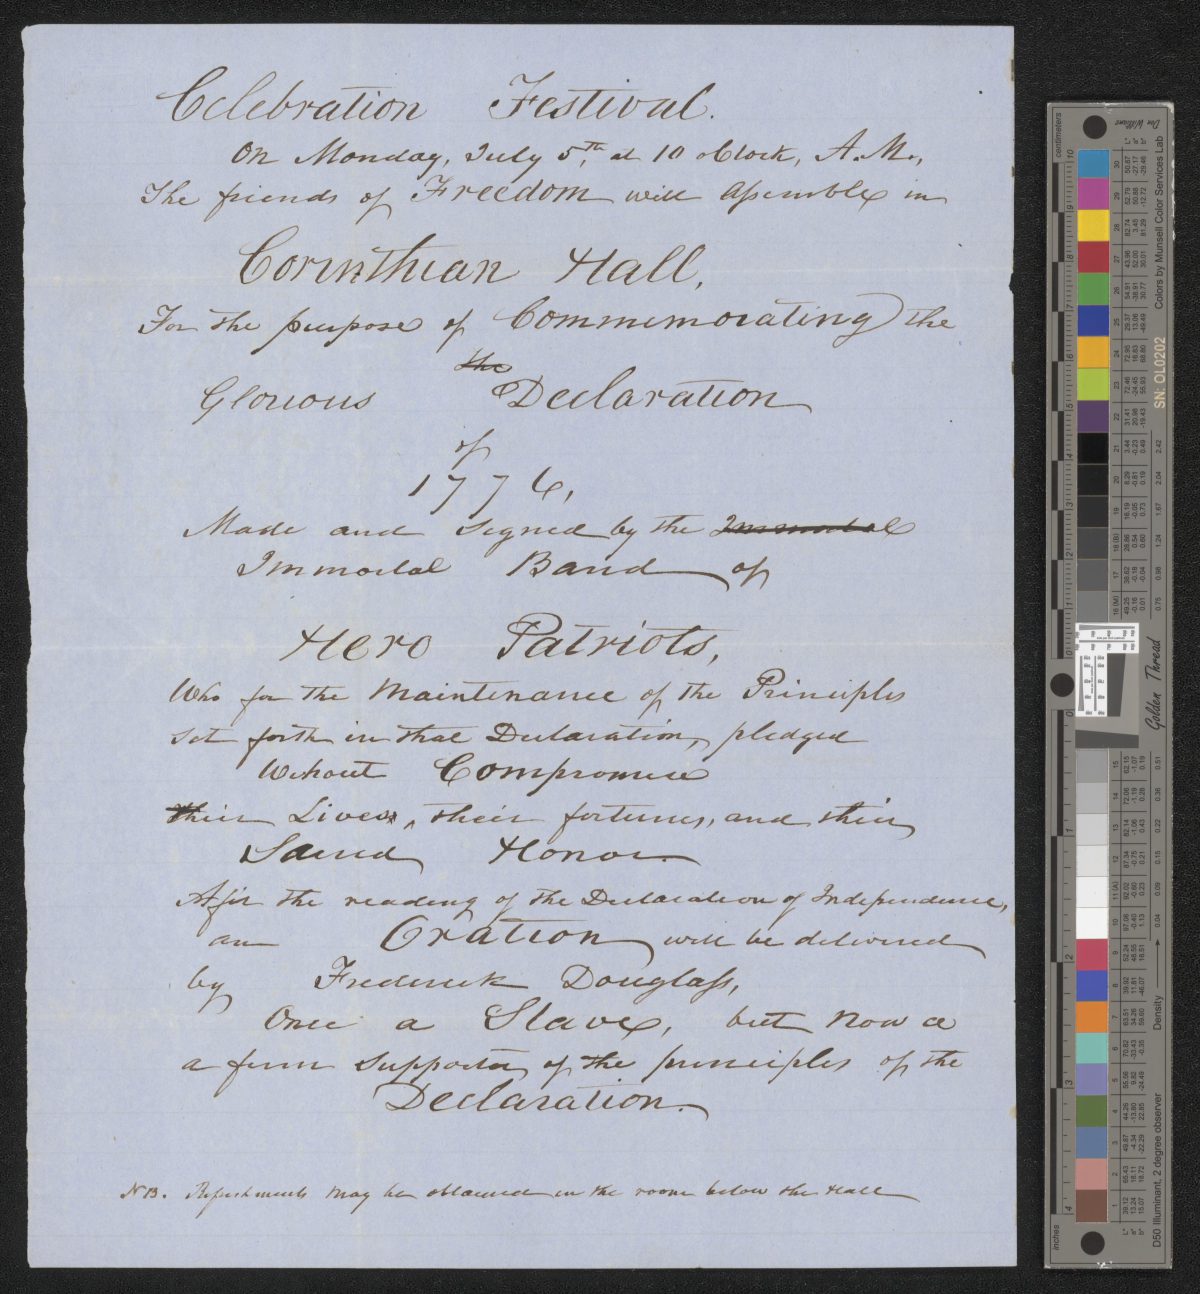 Celebration Festival.
On Monday, July 5th, at 10 oClock, A.M.,
The friends of Freedom will Assemble in
Corinthian Hall,
For the purpose of Commemorating the
the
Glorious Declaration
of
1776,
Made and signed by the Immortal
Immortal Band of
Hero Patriots,
Who for the Maintenance of the Principles
set forth in that Declaration, pledged
Without Compromise
their Lives, their fortunes, and their
Sacred Honor.
After the reading of the Declaration of Independence,
an Oration will be delivered
by Frederick Douglass,
Once a Slave, but now a
a firm supporter of the principles of the
Declaration.
N B. Refreshments may be obtained in the room below the Hall
centimeters
Don Williams
Colors by Munsell Color Services Lab
SN: OL0202
Golden Thread
Density
D50 Illuminant, 2 degree observer
inches